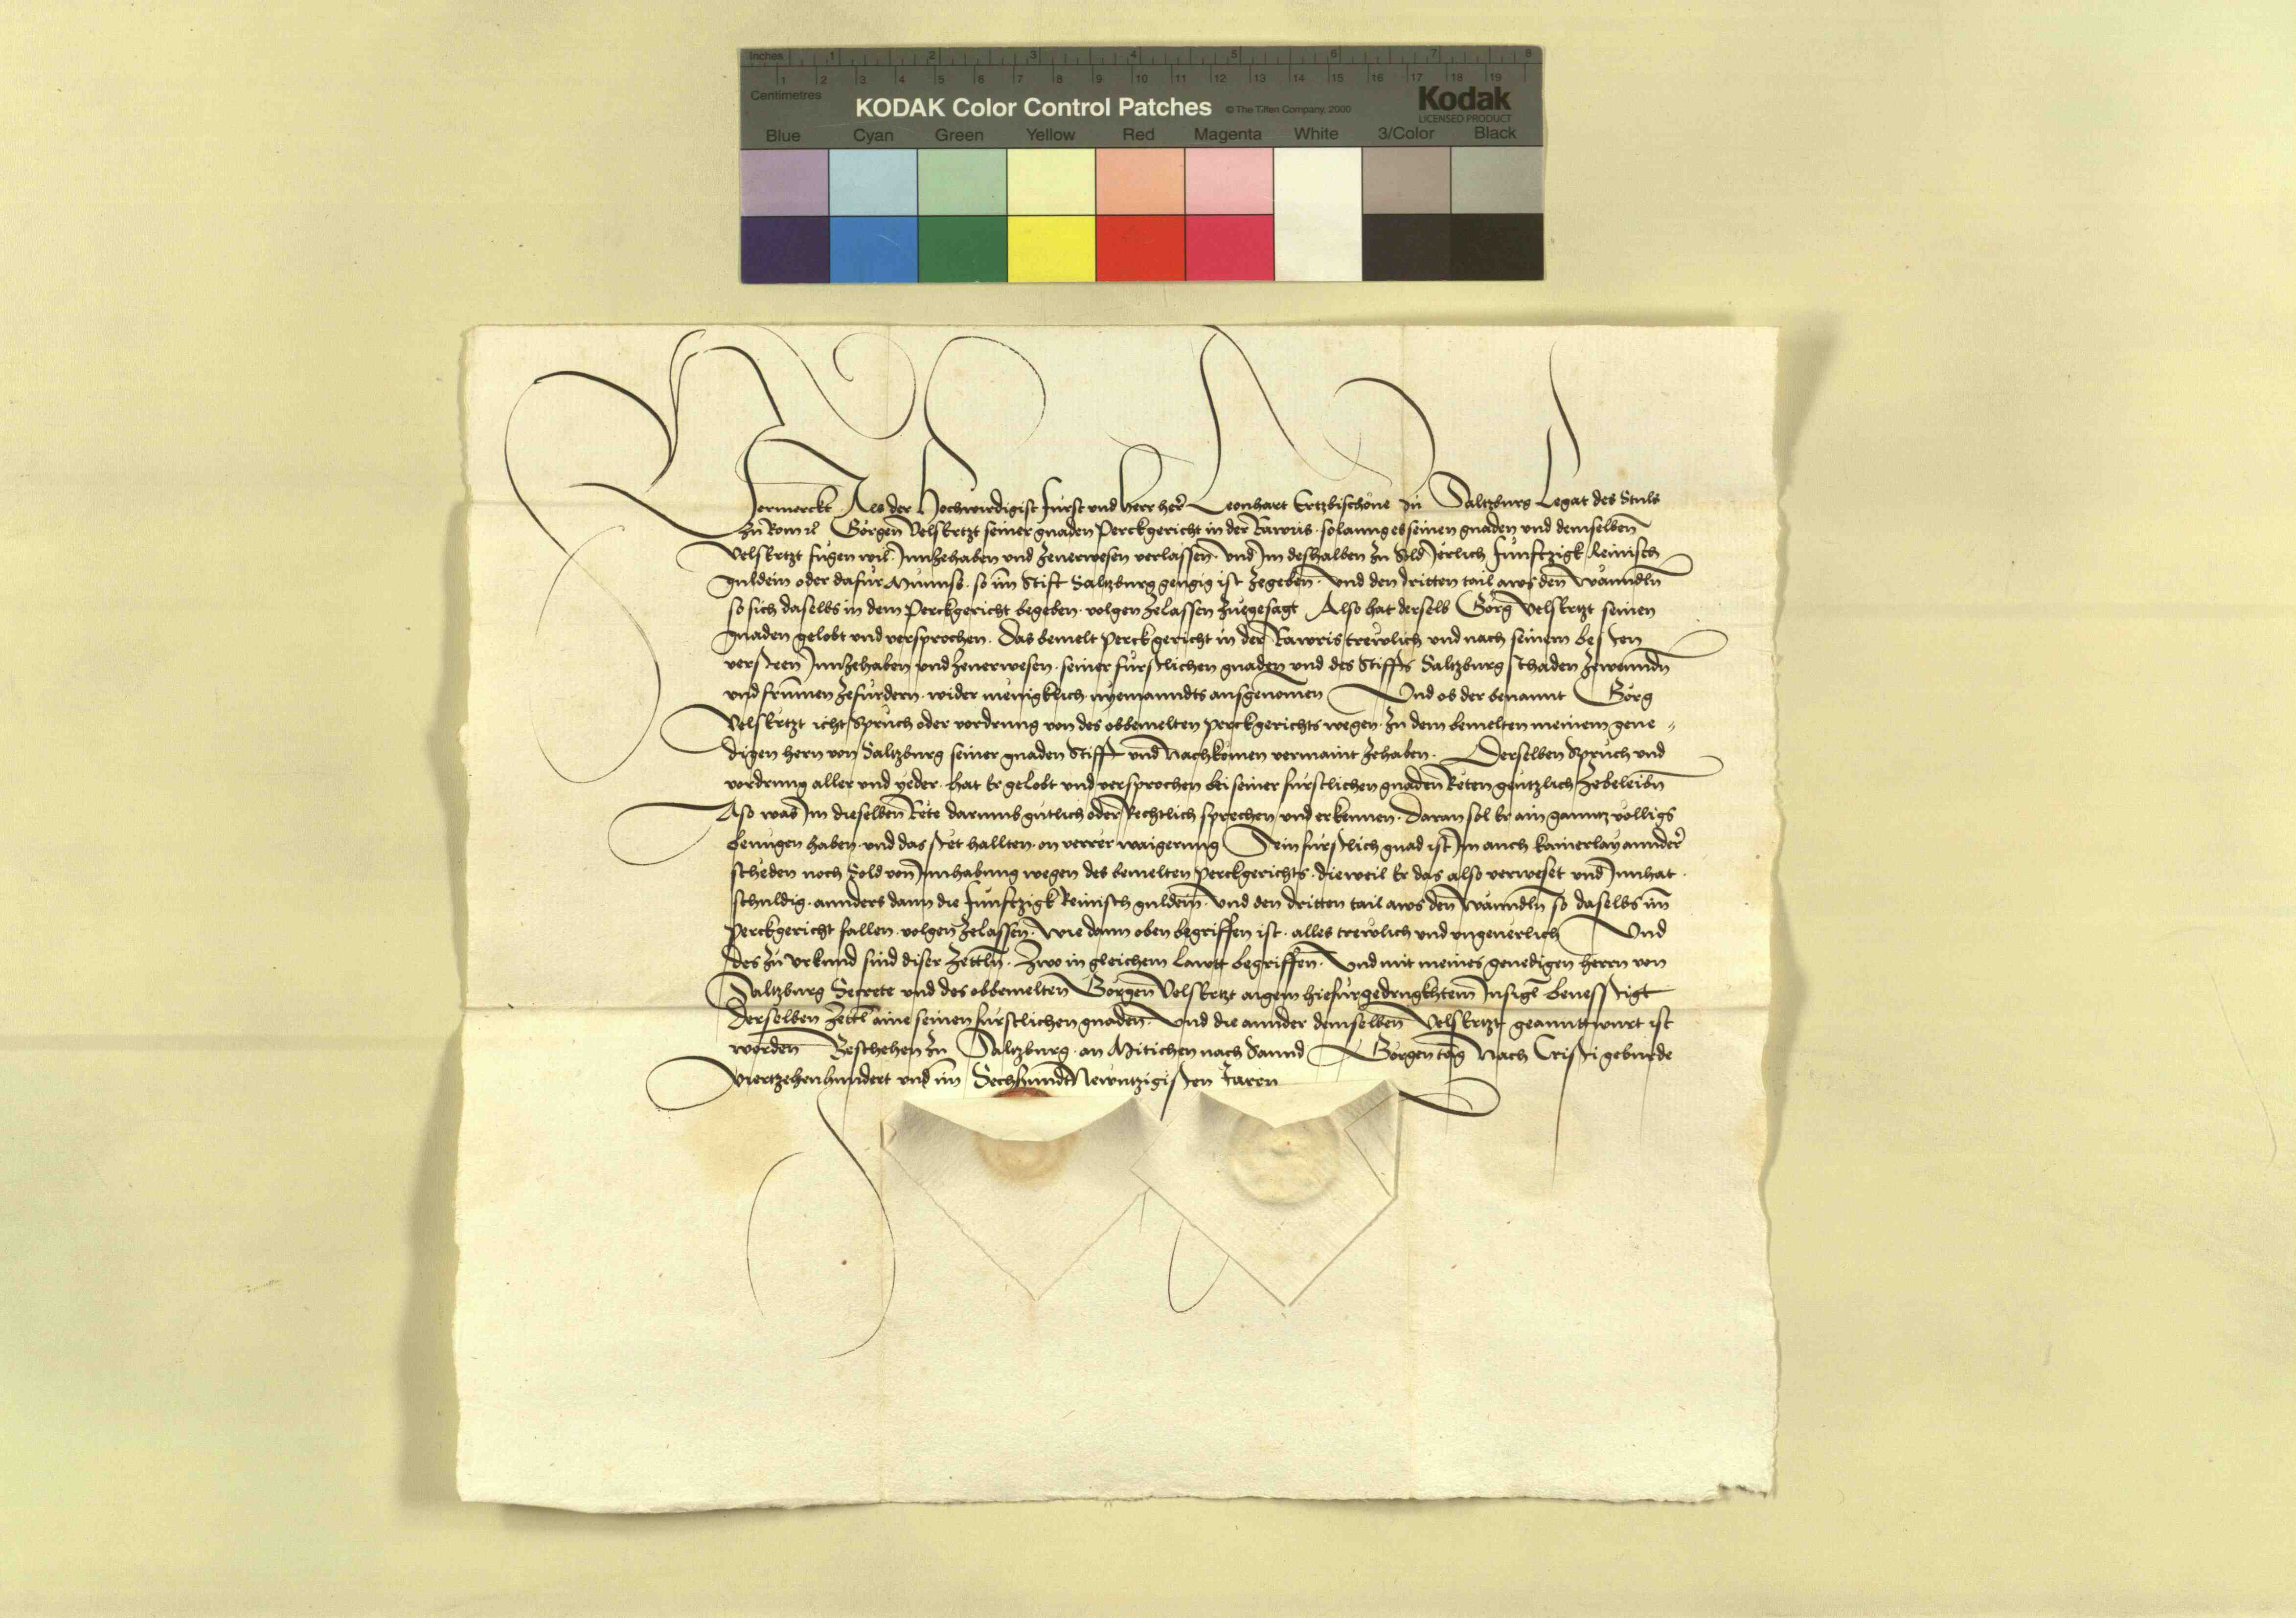 Inches 1 2 3 4 5 6 7 8
1 2 3 4 5 6 7 8 9 10 11 12 13 14 15 16 17 18 19
Centimetres
KODAK Color Control Patches © The Tiffen Company, 2000 Kodak
LICENSED PRODUCT
Blue Cyan Green Yellow Red Magenta White 3/Color Black
Vermerckt Als der Hochwirdigist Fürst und Herr her Leonhart Ertzbischove zu Saltzburg Legat des Stuls
zu Rom etc Görgen Velskrtzt seiner gnaden Perckgericht in der Rawris. solanng es seinen gnaden und demselben
Velskrtzt fügen wil. Innzehaben und zeverwesen verlassen. und Im deshalben zu Sold Jerlich Fünftzigk Reinisch
guldein oder dafür Münnss. so im Stift Saltzburg gengig ist zegeben. Und den dritten tail aws den wänndln
so sich daselbs in dem Perckgericht begeben. volgen zelassen zuegesagt Also hat derselb Görg Velskrtzt seinen
gnaden gelobt und versprochen. Das bemelt Perckgericht in der Rawris trewlich und nach seinem besten
versteen Innzehaben und zeverwesen. seiner fürstlichen gnaden und des Stiffts Saltzburg schaden zewenndn
und frummen zefürdern. wider menigklich nyemanndts ausgenomen Und ob der benannt Görg
Velskrtzt icht Spruch oder vordrung von des obbemelten perckgerichts wegen. zu dem bemelten meinem gene-
digen hern von Saltzburg seiner gnaden Stifft und Nachkomen vermaint zehaben. Derselben Spruch und
vordrung aller und yeder. hat Er gelobt und versprochen bei seiner fürstlichen gnaden Reten genntzlich zebeleibn
Also was Im dieselben Rete darumb gutlich oder Rechtlich sprechen und erkennen. Daran sol Er ain ganntz völligs
benügen haben. und das stet hallten. on verrer waigerung Sein fürstlich gnad ist Im auch kainerlay annder
scheden noch Sold von Innhabung wegen des bemelten Perckgerichts. dieweil Er das also verweset und Innhat.
schuldig. annders dann die Fünftzigk Reinisch guldein. Und den dritten tail aws den wänndln so daselbs im
Perckgericht fallen. volgen zelassen. Wie dann oben begriffen ist. alles trewlich und ungeverlich Und
des zu Urkund sind diser Zettln. Zwo in gleichem lawtt begriffen. Und mit meines genedigen herrn von
Saltzburg Secrete und des obbemelten Görgen Velskrtzt aigem hiefürgedrugkhtem Insigl bevesstigt
Derselben Zettl aine seinen fürstlichen gnaden. Und die annder demselben Velskrtzt geanntwurt ist
worden Beschehen zu Saltzburg. an Mitichen nach Sannd Görgen tag Nach Cristi geburde
Viertzehenhundert und im Sechsundnewntzigisten Jaren